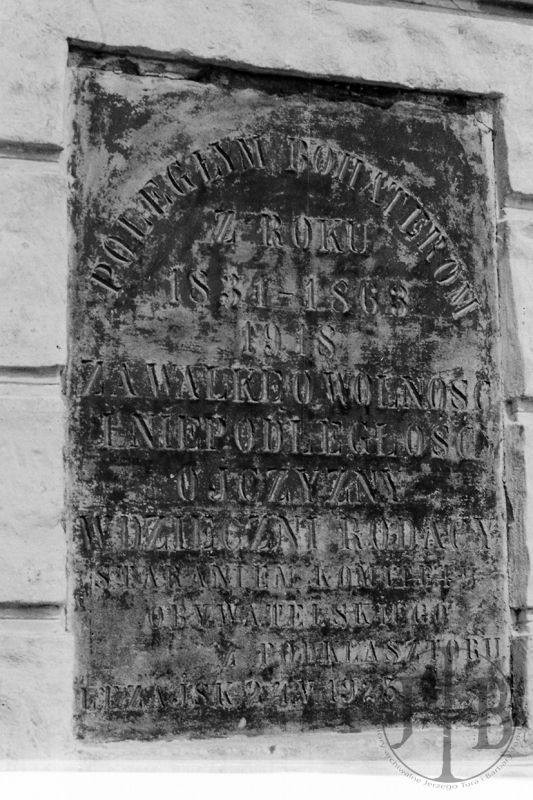 POLEGŁYM BOHATEROM
Z ROKU
1831-1863
1918
ZA WALKĘ O WOLNOŚĆ
I NIEPODLEGŁOŚĆ
OJCZYZNY
WDZIĘCZNI RODACY
STARANIEM KOMITETU
OBYWATELSKIEGO
Z PODKLASZTORU
LEŻAJSK 1925
JTB
Jerzego Tura i Barbar